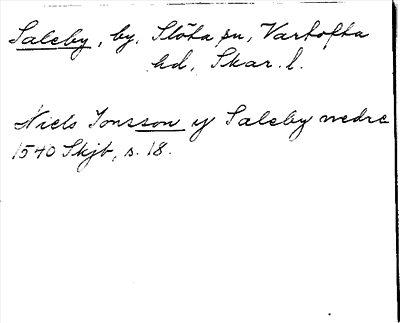 Saleby, by. Slöta sn, Vartofta
hd, Skar. l.
Niels Jonsson y Saleby nedre
1540 Skjb, s. 18.